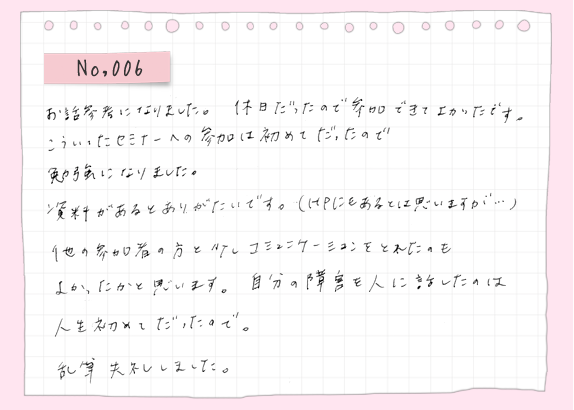 No,006
お話参考になりました。 休日だったので参加できてよかったです。
こういったセミナーへの参加は初めてだったので
勉強になりました。
資料があるとありがたいです。(HPにもあるとは思いますが…)
他の参加者の方と少しコミュニケーションをとれたのも
よかったかと思います。 自分の障害を人に話したのは
人生初めてだったので。
乱筆失礼しました。